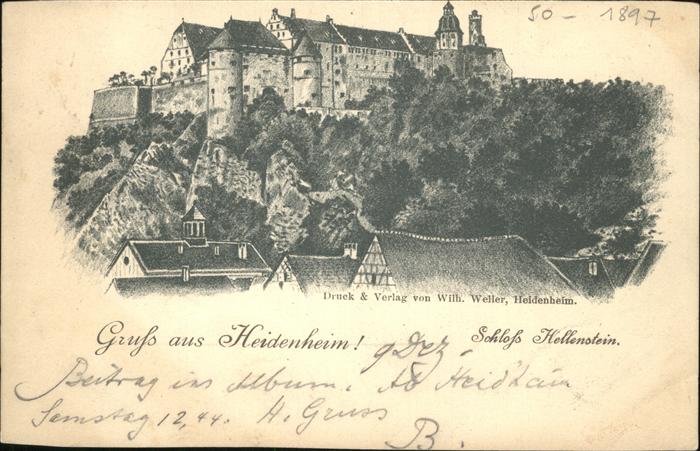 50 - 1897
Druck & Verlag von Wilh. Weller, Heidenheim.
Gruß aus Heidenheim!
Schloß Hellenstein.
9 Dez.
Beitrag ins Album.
Samstag 12,44. H. Gruss
B.